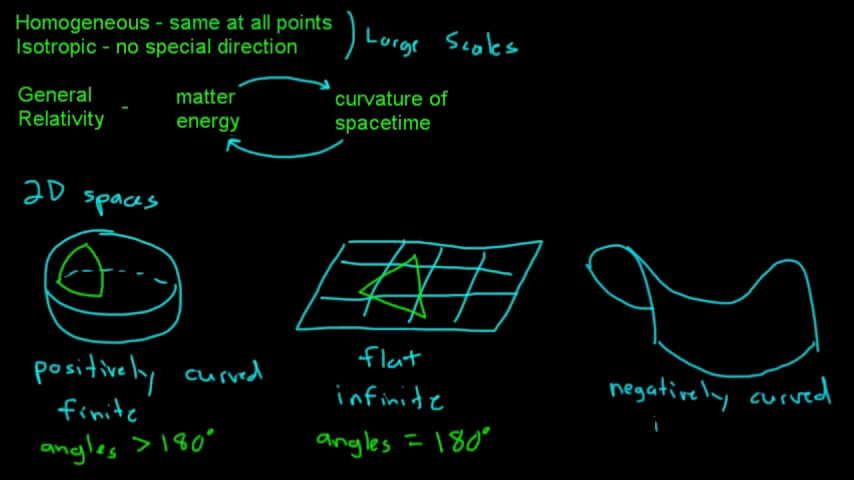 Homogeneous - same at all points
Isotropic - no special direction
Large Scales
General Relativity -
matter energy
curvature of spacetime
2D spaces
positively curved
finite
angles > 180°
flat
infinite
angles = 180°
negatively curved
i